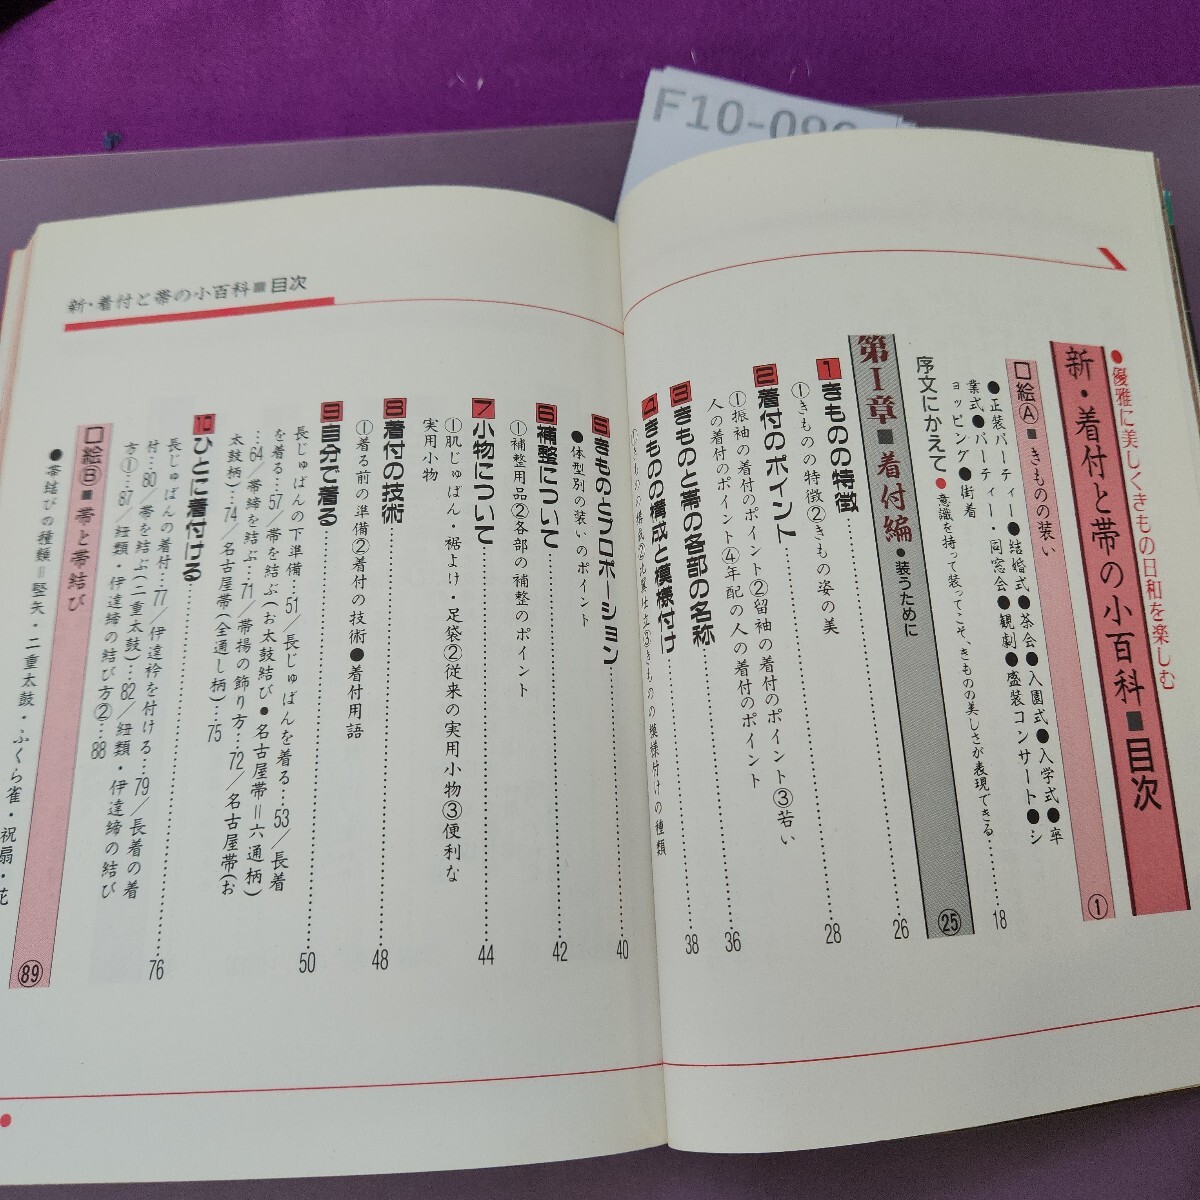 F10-09
●優雅に美しくきもの日和を楽しむ
新・着付と帯の小百科■目次
口絵Ⓐ■きものの装い
①
●正装パーティー●結婚式●茶会●入園式●入学式●卒
業式●パーティー・同窓会●観劇●盛装コンサート●シ
ョッピング●街着
序文にかえて●意識を持って装ってこそ、きものの美しさが表現できる……18
第Ⅰ章■着付編●装うために
㉕
1 きものの特徴……26
①きものの特徴②きもの姿の美
2 着付のポイント……28
①振袖の着付のポイント②留袖の着付のポイント③若い
人の着付のポイント④年配の人の着付のポイント
3 きものと帯の各部の名称……36
4 きものの構成と模様付け……38
きものの模様付けの種類
5 きものとプロポーション……40
●体型別の装いのポイント
6 補整について……42
①補整用品②各部の補整のポイント
7 小物について……44
①肌じゅばん・裾よけ 足袋②従来の実用小物③便利な
実用小物
8 着付の技術……48
①着る前の準備②着付の技術●着付用語
9 自分で着る……50
長じゅばんの下準備…51／長じゅばんを着る…53／長着
を着る…57／帯を結ぶ(お太鼓結び●名古屋帯＝六通柄)
…64／帯締を結ぶ…71／帯揚の飾り方…72／名古屋帯(お
太鼓柄)…74／名古屋帯(全通し柄)…75
10 ひとに着付ける……76
長じゅばんの着付…77／伊達衿を付ける…79／長着の着
付…80／帯を結ぶ(二重太鼓)…82／紐類・伊達締の結び
方①…87／紐類・伊達締の結び方②…88
口絵Ⓑ■帯と帯結び
89
●帯結びの種類＝竪矢・二重太鼓・ふくら雀・祝扇・花
新・着付と帯の小百科■目次